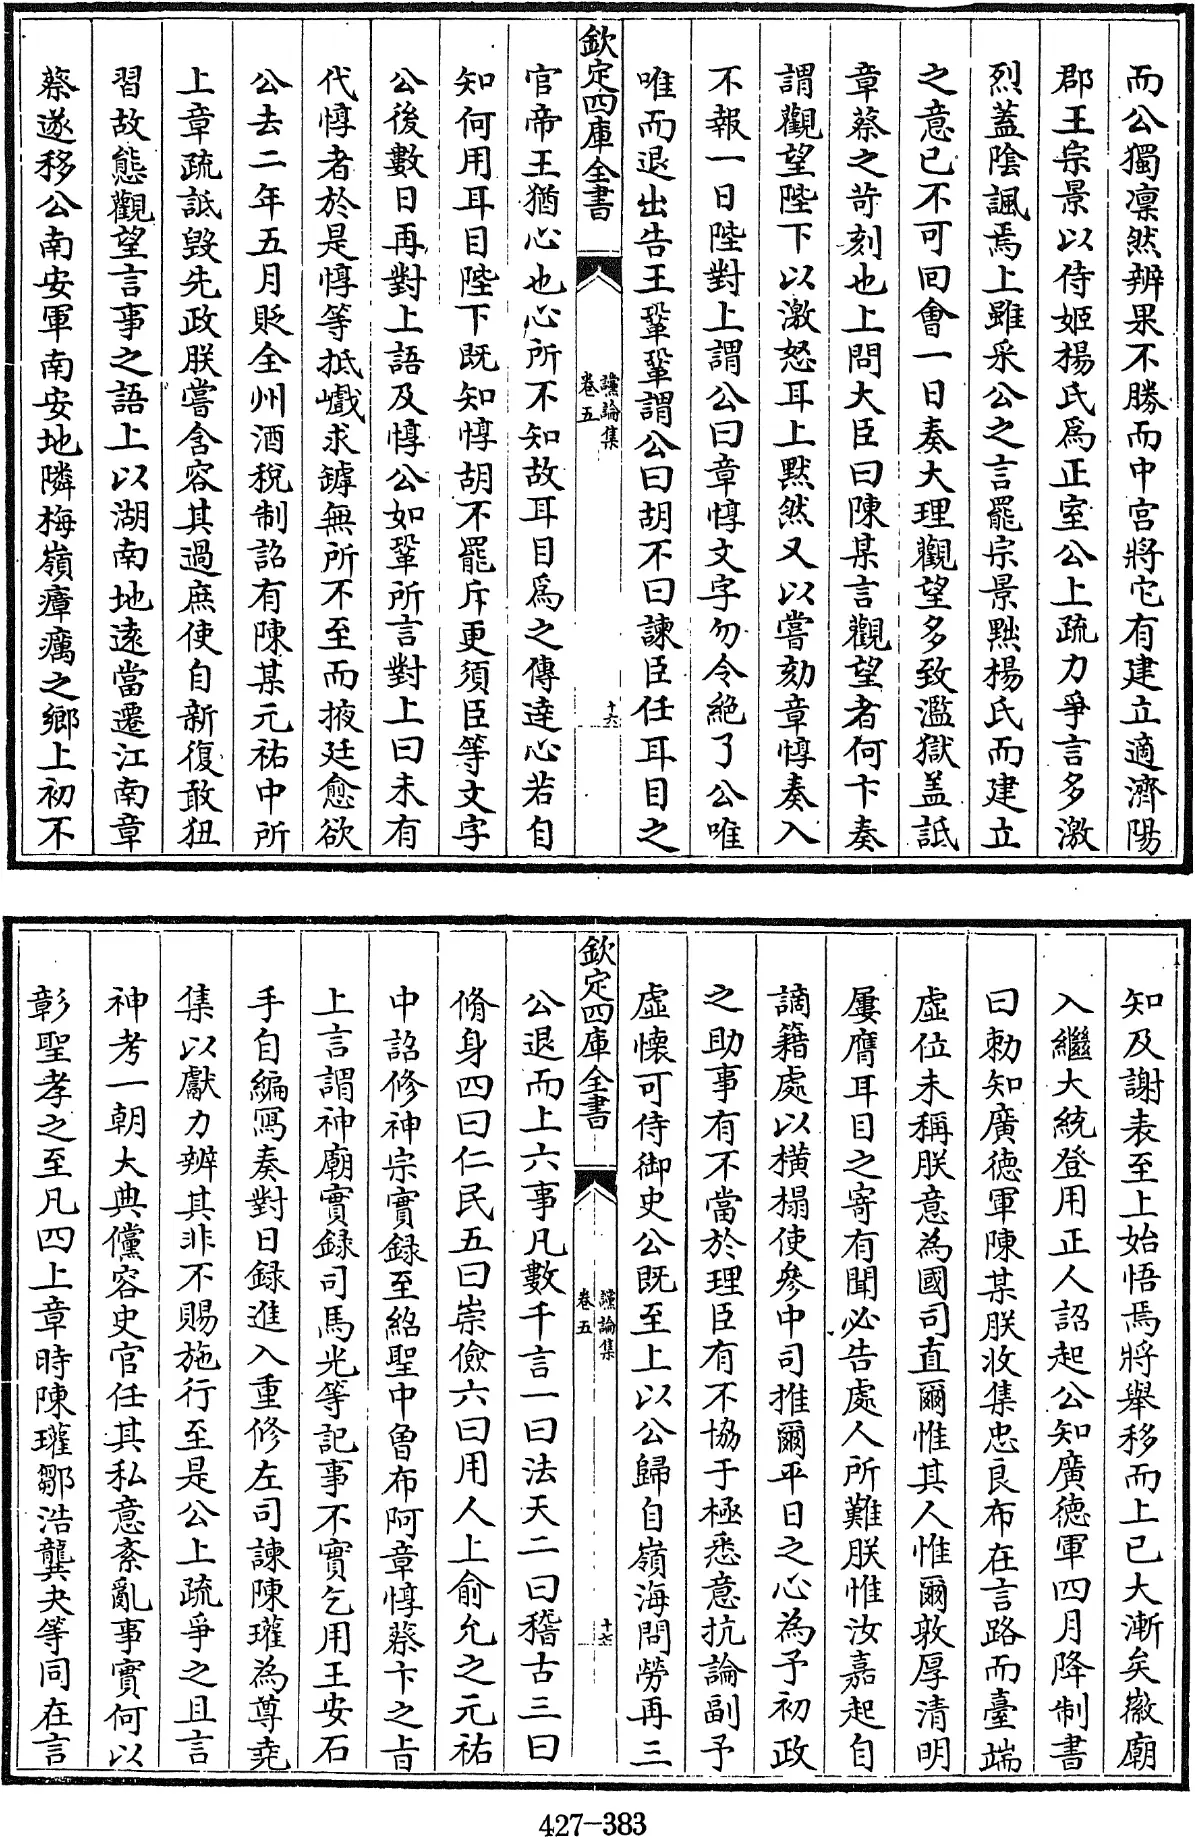 而公獨凜然辨果不勝而中宮將它有建立適濟陽
郡王宗景以侍姬楊氏爲正室公上疏力爭言多激
烈蓋陰諷焉上雖采公之言罷宗景黜楊氏而建立
之意已不可回會一日奏大理觀望多致濫獄盖詆
章蔡之苛刻也上問大臣曰陳某言觀望者何卞奏
謂觀望陛下以激怒耳上默然又以嘗劾章惇奏入
不報一日陛對上謂公曰章惇文字勿令絶了公唯
唯而退出告王鞏鞏謂公曰胡不曰諫臣任耳目之
欽定四庫全書
讜論集
卷五
十六
官帝王猶心也心所不知故耳目爲之傳達心若自
知何用耳目陛下既知惇胡不罷斥更須臣等文字
公後數日再對上語及惇公如鞏所言對上曰未有
代惇者於是惇等抵巇求罅無所不至而掖廷愈欲
公去二年五月貶全州酒稅制詔有陳某元祐中所
上章疏詆毀先政朕嘗含容其過庶使自新復敢狃
習故態觀望言事之語上以湖南地遠當遷江南章
蔡遂移公南安軍南安地隣梅嶺瘴癘之鄉上初不
知及謝表至上始悟焉將舉移而上已大漸矣徽廟
入繼大統登用正人詔起公知廣德軍四月降制書
曰勅知廣德軍陳某朕收集忠良布在言路而臺端
虛位未稱朕意為國司直爾惟其人惟爾敦厚清明
屢膺耳目之寄有聞必告處人所難朕惟汝嘉起自
謫籍處以橫榻使參中司推爾平日之心為予初政
之助事有不當於理臣有不協于極悉意抗論副予
虛懷可侍御史公既至上以公歸自嶺海問勞再三
欽定四庫全書
讜論集
卷五
十六
公退而上六事凡數千言一曰法天二曰稽古三曰
脩身四曰仁民五曰崇儉六曰用人上俞允之元祐
中詔修神宗實錄至紹聖中曾布阿章惇蔡卞之㫖
上言謂神廟實錄司馬光等記事不實乞用王安石
手自編寫奏對日錄進入重修左司諫陳瓘為尊堯
集以獻力辨其非不賜施行至是公上疏爭之且言
神考一朝大典儻容史官任其私意紊亂事實何以
彰聖孝之至凡四上章時陳瓘鄒浩龔夬等同在言
427-383